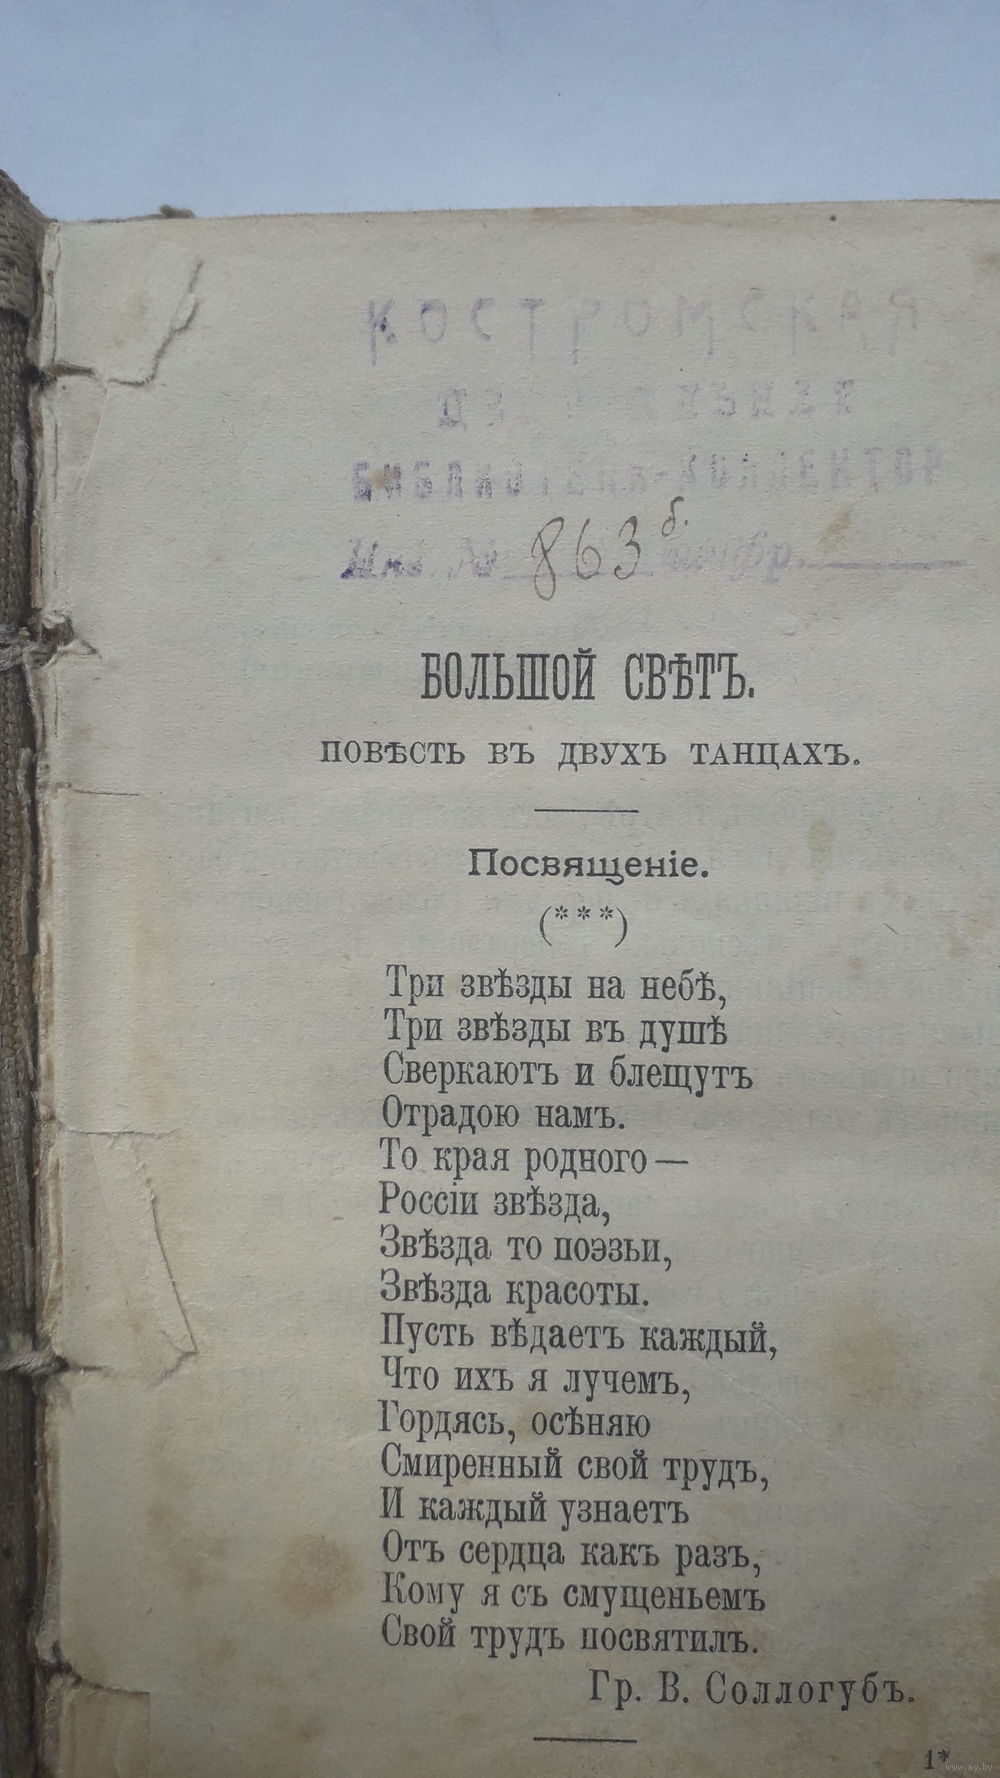 КОСТРОМСКАЯ
БИБЛИОТЕКА-КОЛЛЕКТОР
Инв. № 863 б. шифр.
БОЛЬШОЙ СВѢТЪ.
ПОВѢСТЬ ВЪ ДВУХЪ ТАНЦАХЪ.
Посвященіе.
(***)
Три звѣзды на небѣ,
Три звѣзды въ душѣ
Сверкаютъ и блещутъ
Отрадою намъ.
То края родного—
Россіи звѣзда,
Звѣзда то поэзьи,
Звѣзда красоты.
Пусть вѣдаетъ каждый,
Что ихъ я лучемъ,
Гордясь, осѣняю
Смиренный свой трудъ,
И каждый узнаетъ
Отъ сердца какъ разъ,
Кому я съ смущеньемъ
Свой трудъ посвятилъ.
Гр. В. Соллогубъ.
1*
www.ay.by